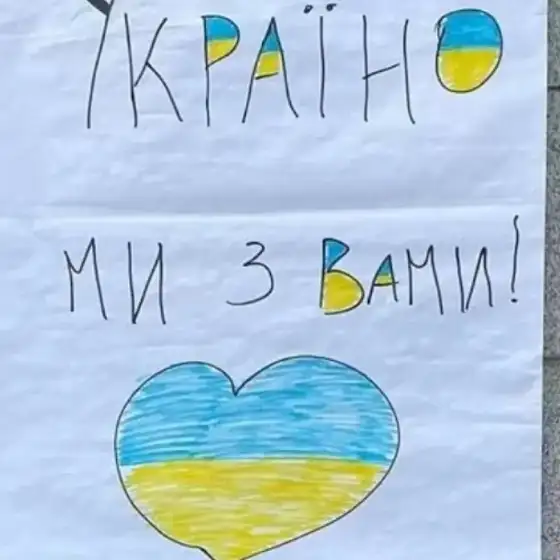 УКРАЇНО
МИ З ВАМИ!